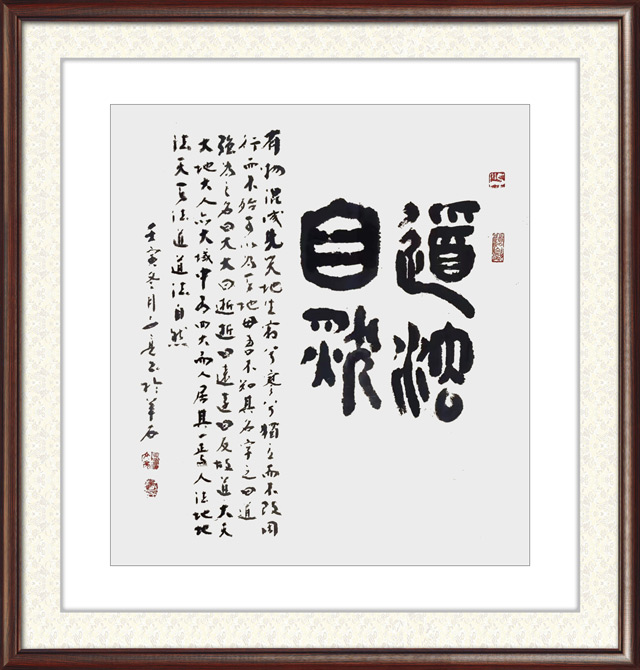 道法
自然
有物混成先天地生寂兮寥兮獨立而不改周
行而不殆可以為天地母吾不知其名字之曰道
強為之名曰大大曰逝逝曰遠遠曰反故道大天
大地大人亦大域中有四大而人居其一焉人法地地
法天天法道道法自然
壬寅冬月書於羊石